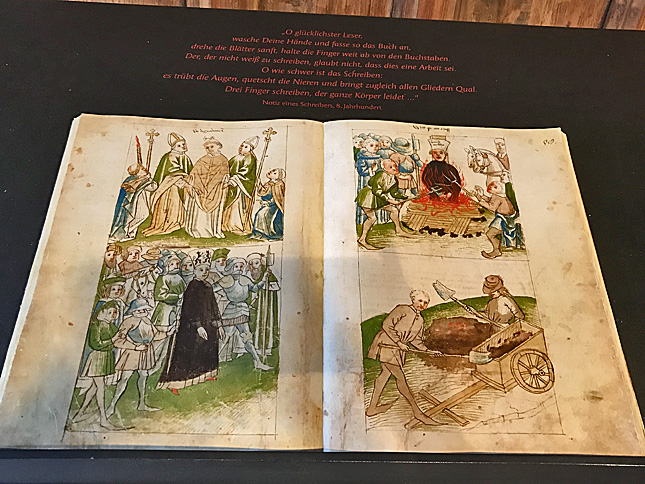 „O glücklichster Leser,
wasche Deine Hände und fasse so das Buch an,
drehe die Blätter sanft, halte die Finger weit ab von den Buchstaben.
Der, der nicht weiß zu schreiben, glaubt nicht, dass dies eine Arbeit sei.
O wie schwer ist das Schreiben:
es trübt die Augen, quetscht die Nieren und bringt zugleich allen Gliedern Qual.
Drei Finger schreiben, der ganze Körper leidet ...“
Notiz eines Schreibers, 8. Jahrhundert